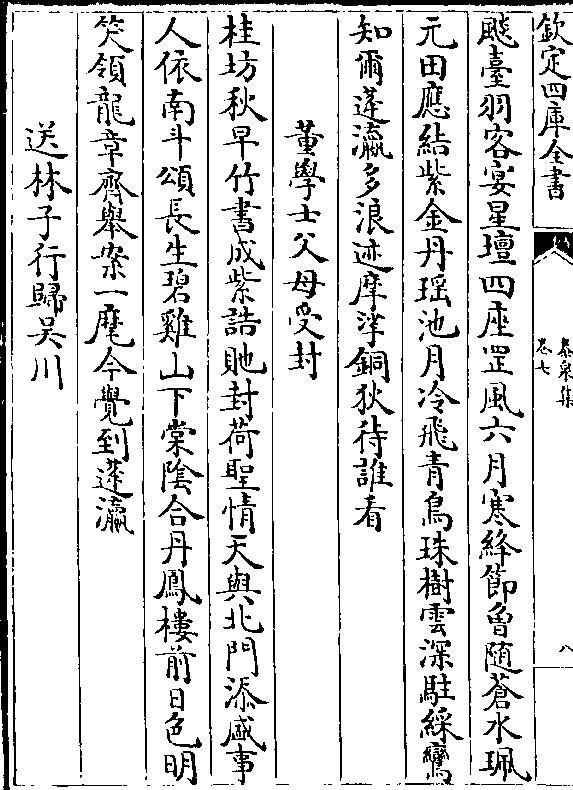 欽定四庫全書
泰泉集
卷七
八
飈臺羽客宴星壇四座罡風六月寒絳節曾隨蒼水珮
元田應結紫金丹瑶池月冷飛青鳥珠樹雲深駐綵鸞
知爾蓬瀛多浪迹摩挲銅狄待誰看
董學士父母受封
桂坊秋早竹書成紫誥貤封荷聖情天與北門添盛事
人依南斗頌長生碧雞山下棠陰合丹鳳樓前日色明
笑領龍章齊舉案一麾今覺到蓬瀛
送林子行歸吴川